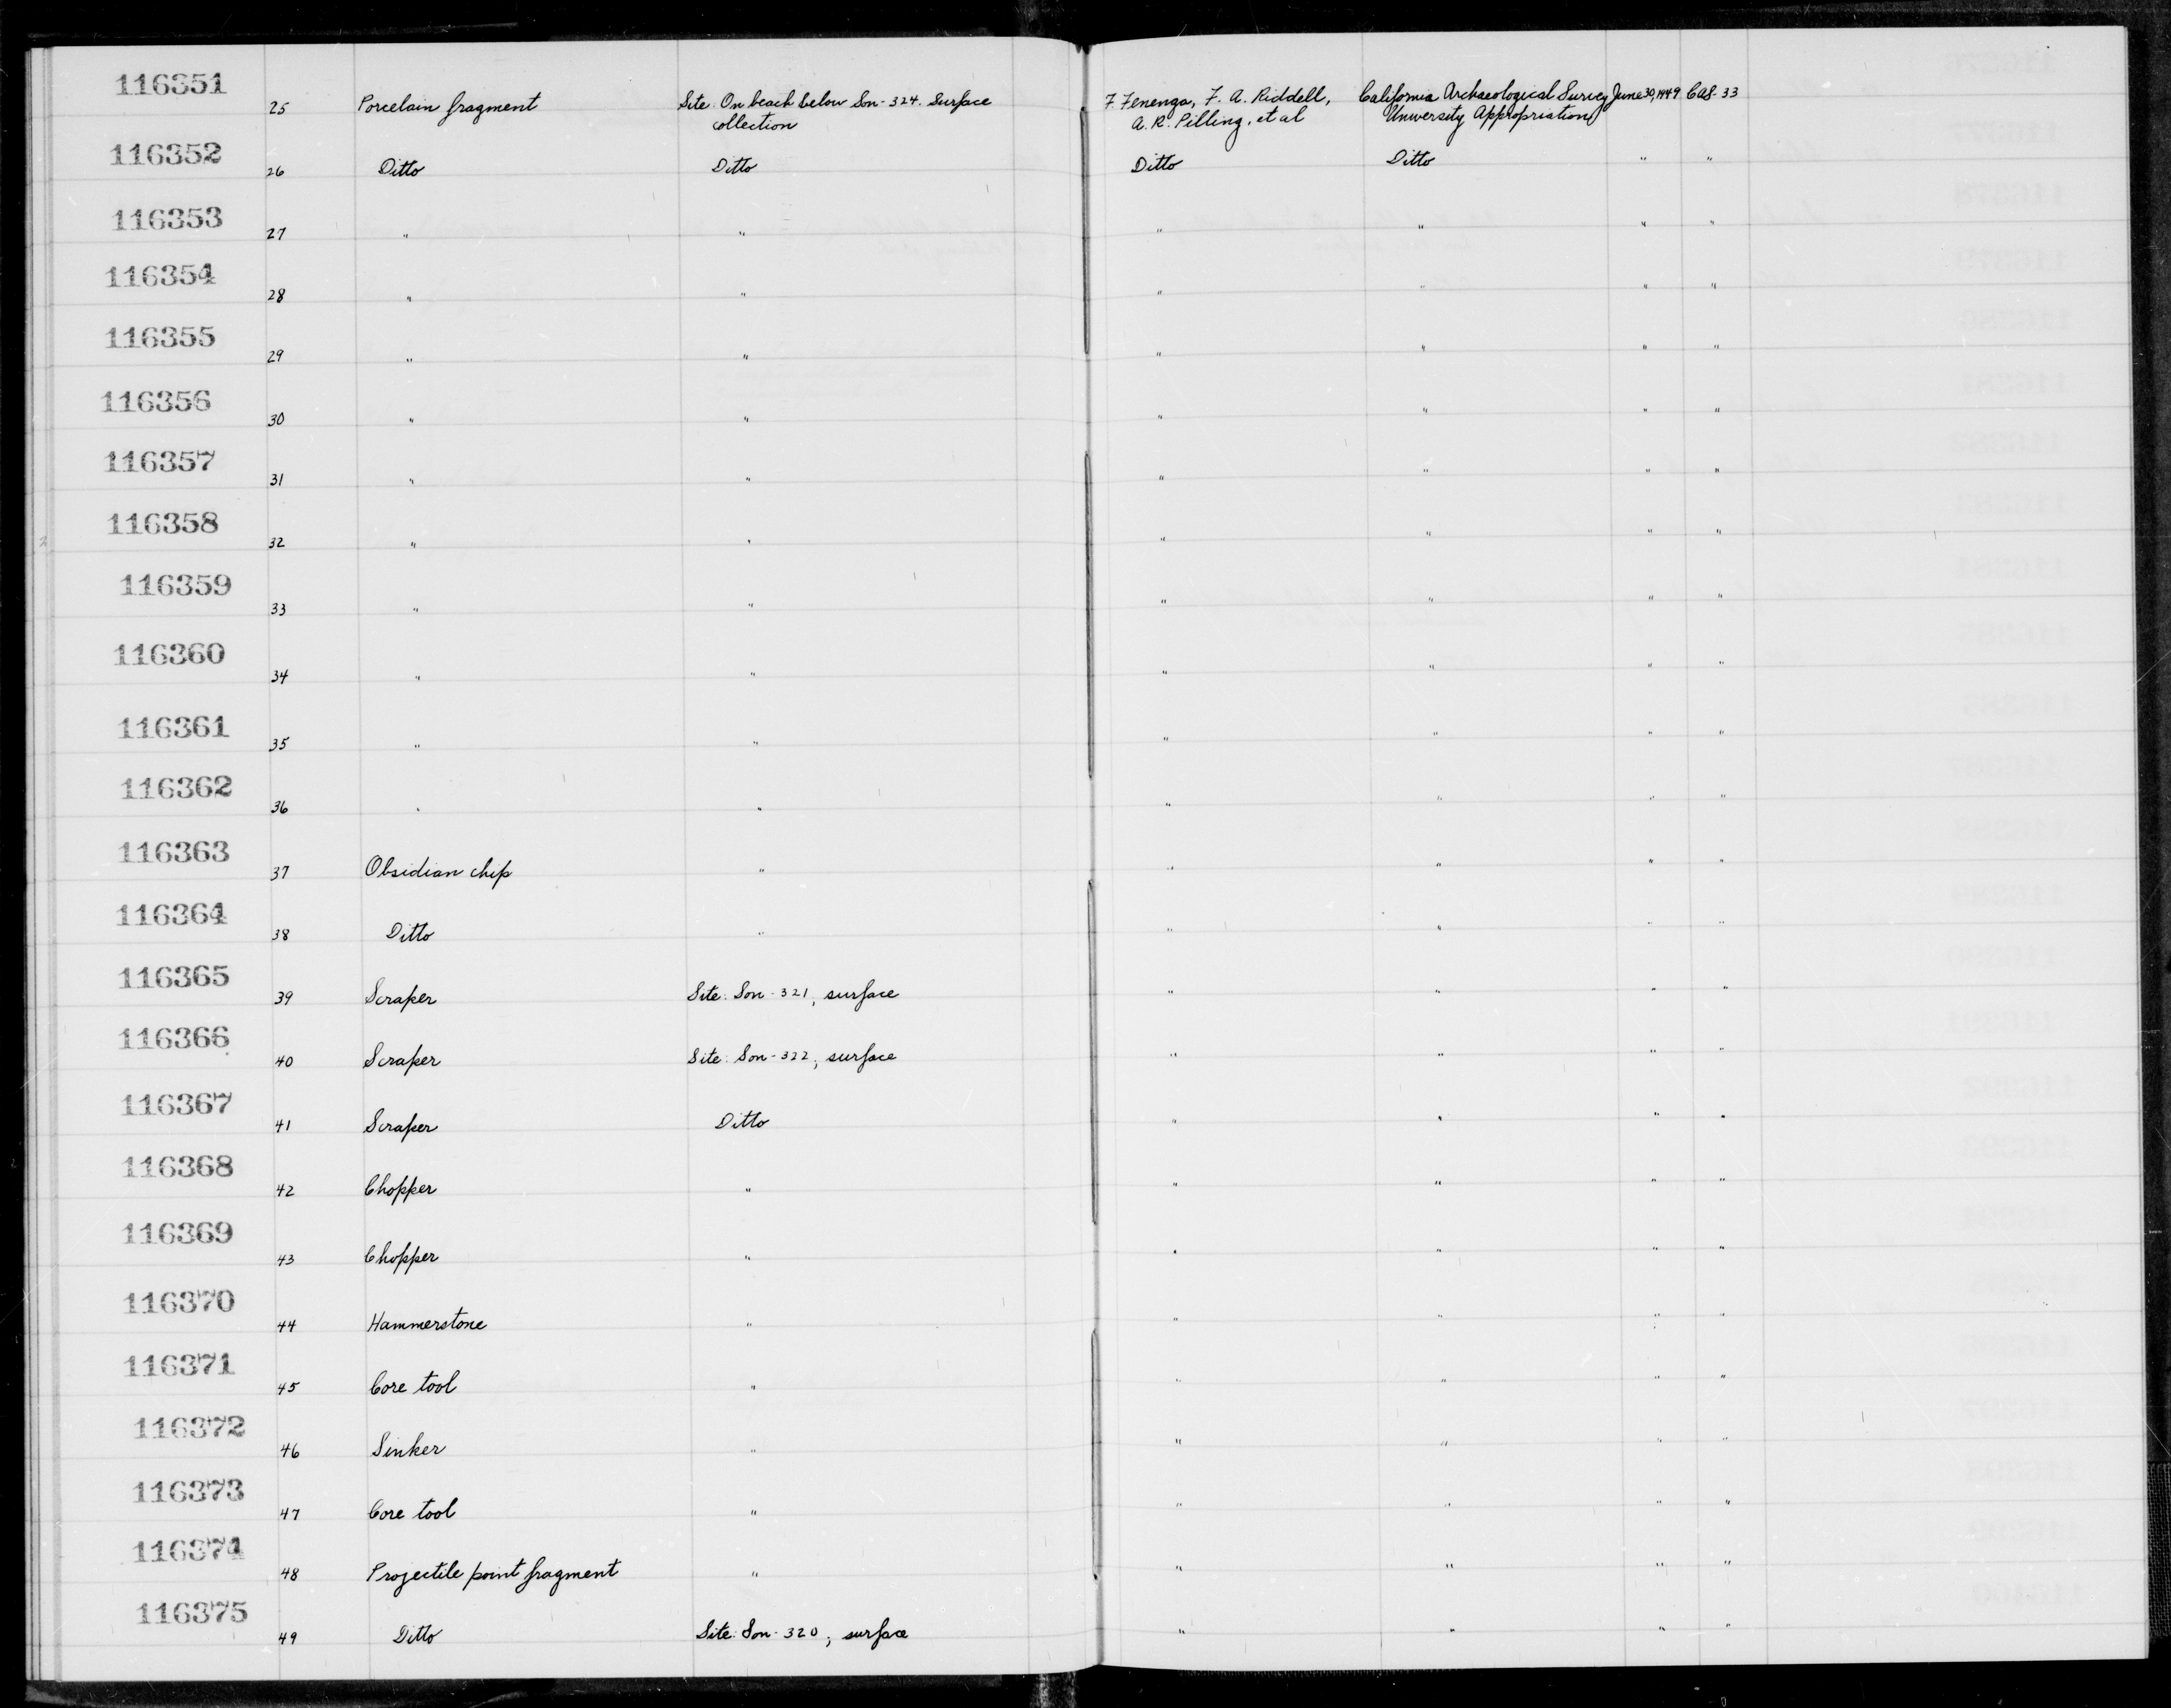 116351 25 Porcelain fragment Site: On beach below Son-324. Surface F. Fenenga, F. A. Riddell, California Archaeological Survey June 30, 1949 CAS-33
collection A. R. Pilling, et al University Appropriation
116352 26 Ditto Ditto Ditto Ditto " "
116353 27 " " " " " "
116354 28 " " " " " "
116355 29 " " " " " "
116356 30 " " " " " "
116357 31 " " " " " "
116358 32 " " " " " "
116359 33 " " " " " "
116360 34 " " " " " "
116361 35 " " " " " "
116362 36 " " " " " "
116363 37 Obsidian chip " " " " "
116364 38 Ditto " " " " "
116365 39 Scraper Site: Son-321, surface " " " "
116366 40 Scraper Site: Son-322, surface " " " "
116367 41 Scraper Ditto " " " "
116368 42 Chopper " " " " "
116369 43 Chopper " " " " "
116370 44 Hammerstone " " " " "
116371 45 Core tool " " " " "
116372 46 Sinker " " " " "
116373 47 Core tool " " " " "
116374 48 Projectile point fragment " " " " "
116375 49 Ditto Site: Son-320, surface " " " "